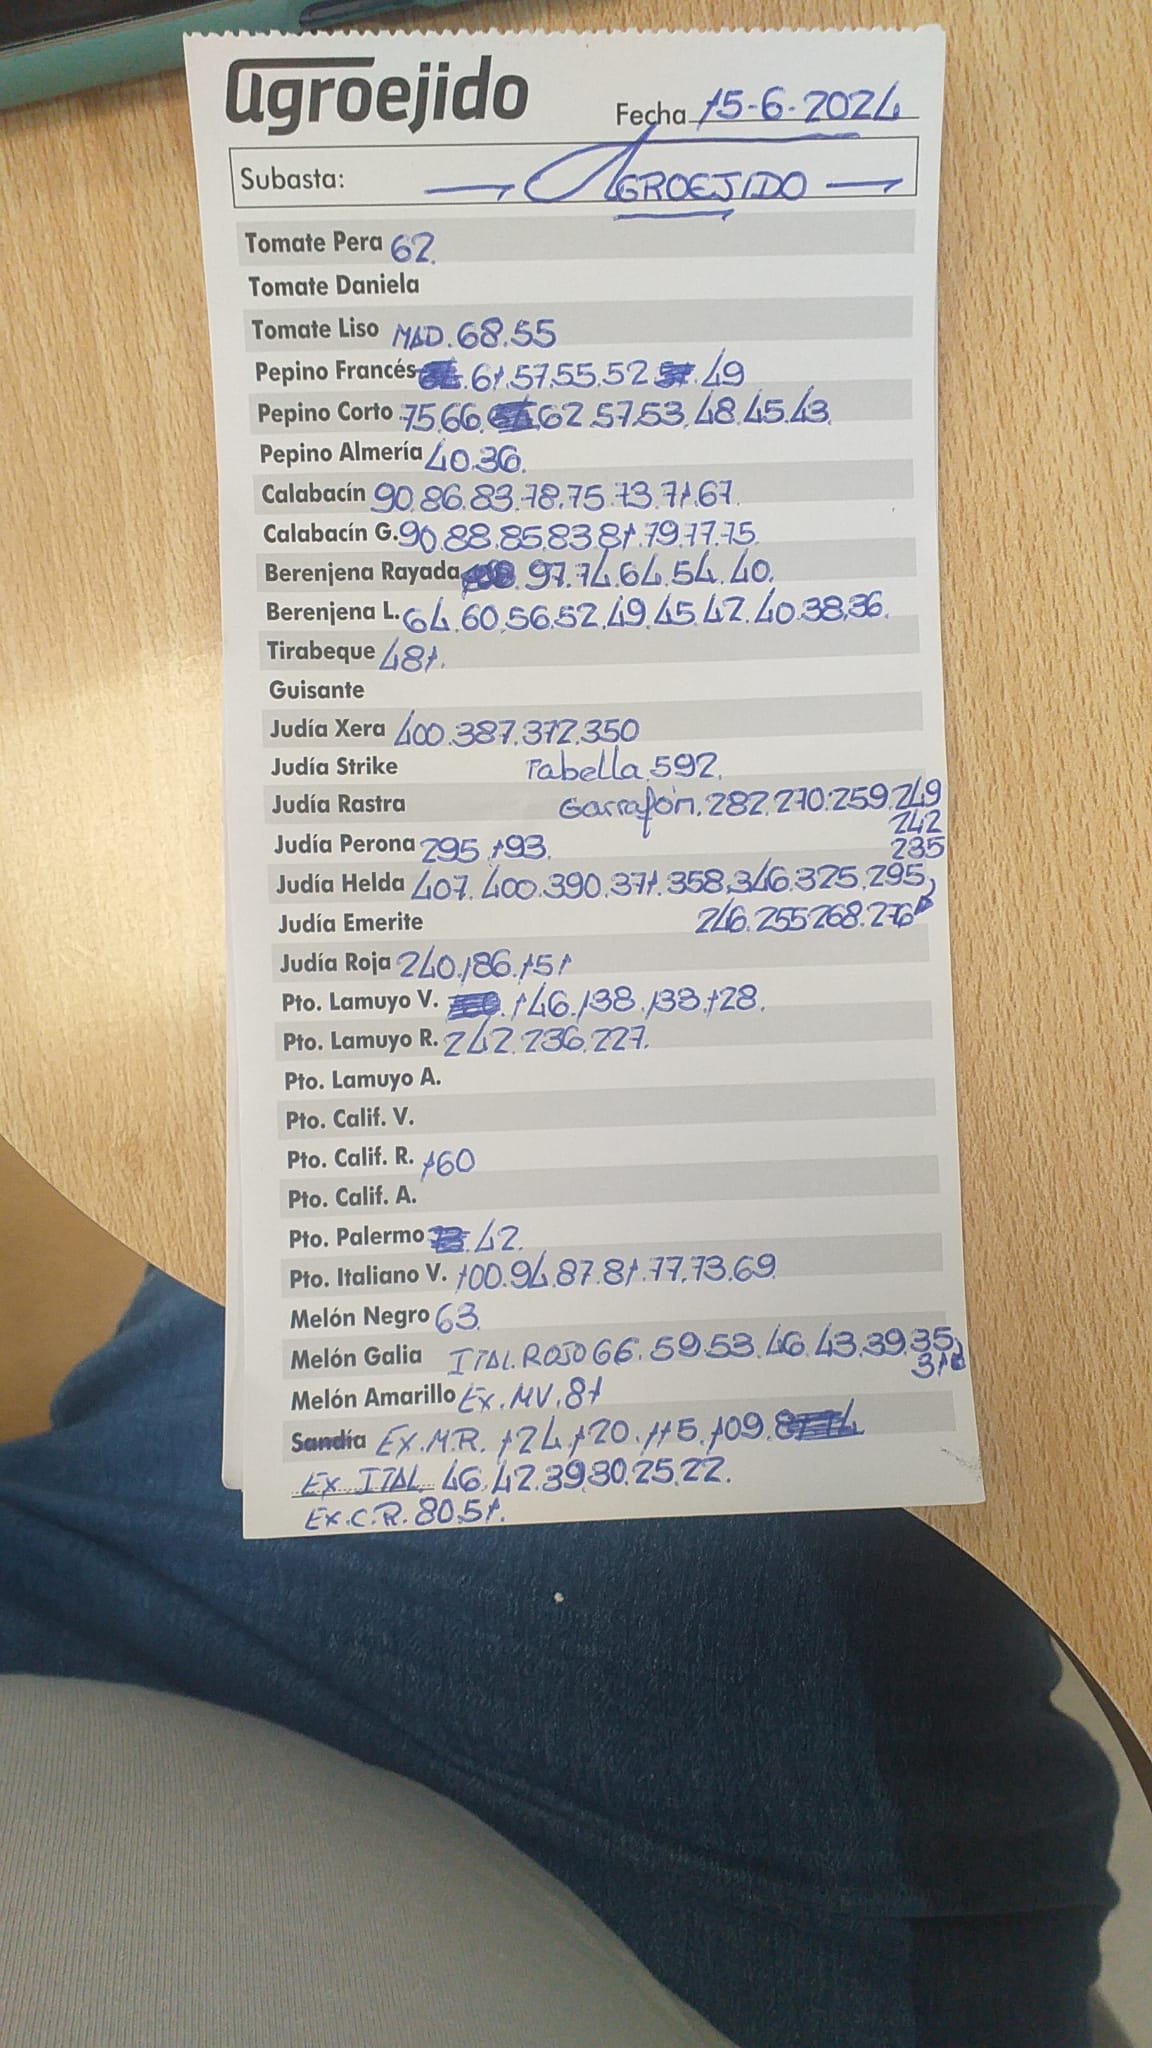 agroejido
Fecha 15-6-2024
Subasta: AGROEJIDO
Tomate Pera 62.
Tomate Daniela
Tomate Liso MAD.68.55
Pepino Francés .61.57.55.52 .49
Pepino Corto 75.66. 62.57.53.48.45.43.
Pepino Almería 40.36.
Calabacín 90.86.83.78.75.73.71.67.
Calabacín G. 90.88.85.83.81.79.77.75.
Berenjena Rayada .97.74.64.54.40.
Berenjena L. 64.60.56.52.49.45.42.40.38.36.
Tirabeque 481.
Guisante
Judía Xera 400.387.372.350
Judía Strike Tabella.592.
Judía Rastra Garrafón.282.270.259.249
242
Judía Perona 295.193. 235
Judía Helda 407.400.390.371.358.346.325.295
Judía Emerite 246.255.268.276
Judía Roja 240.186.151
Pto. Lamuyo V. .146.138.133.128.
Pto. Lamuyo R. 242.236.227.
Pto. Lamuyo A.
Pto. Calif. V.
Pto. Calif. R. 160
Pto. Calif. A.
Pto. Palermo .42.
Pto. Italiano V. 100.94.87.81.77.73.69.
Melón Negro 63.
Melón Galia ITAL.ROJO 66.59.53.46.43.39.35
31
Melón Amarillo Ex.MV.81
Sandía EX.M.R. 124.120.115.109.
EX ITAL. 46.42.39.30.25.22.
EX.C.R.80.51.